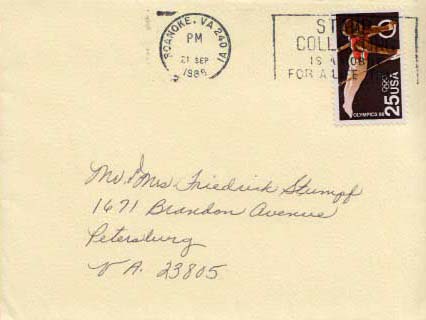 ROANOKE, VA 240
PM
21 SEP
1988
STAMP
COLLECTING
IS A HOBBY
FOR A LIFETIME
25USA
OLYMPICS 88
Mr & Mrs Friedrick Stumpf
1671 Brandon Avenue
Petersburg
VA. 23805